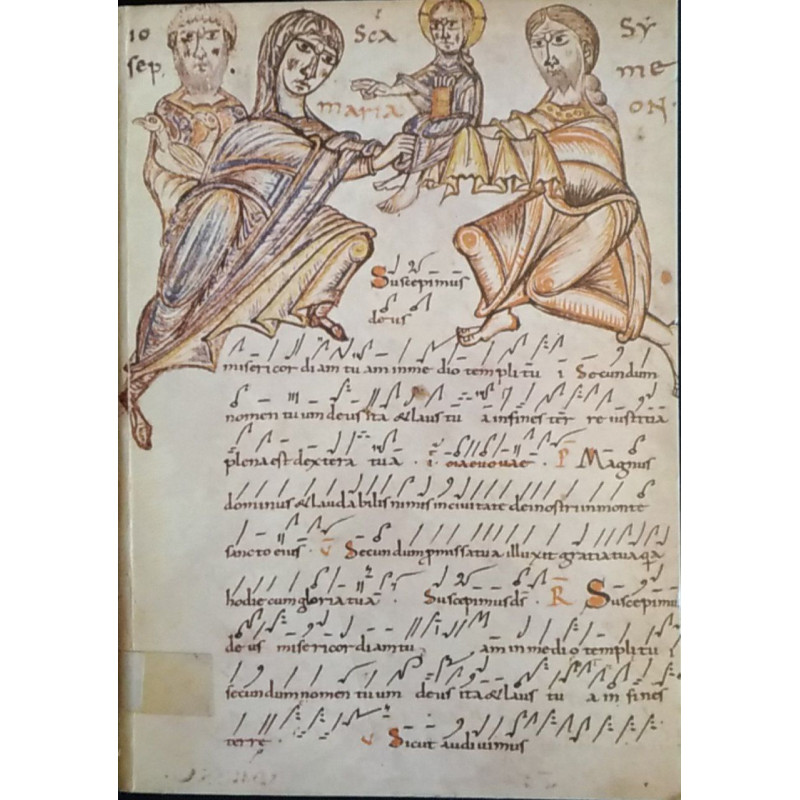 io
sep.
Sca
maria
SẎ
me
ON·
Suscepimus
deus
misericordiam tuam in medio templi tu i Secundum
nomen tuum deus ita & laus tua in fines terre iustitia
plena est dextera tua · euouae · P Magnus
dominus & laudabilis nimis in ciuitate dei nostri in monte
sancto eius · V Secundum missa tua illuxit gratia tua
hodie cum gloria tua · Suscepimus ds · R Suscepimus
deus misericordiam tu am in medio templi tu i
secundum nomen tuum deus ita & laus tu a in fines
terre · V Sicut audiuimus